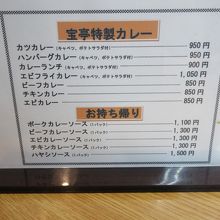 宝亭特製カレー
カツカレー（キャベツ、ポテトサラダ付） 950円
ハンバーグカレー（キャベツ、ポテトサラダ付） 950円
カレーランチ（キャベツ、ポテトサラダ付） 900円
エビフライカレー（キャベツ、ポテトサラダ付） 1,050円
ビーフカレー 850円
チキンカレー 850円
エビカレー 850円
お持ち帰り
ポークカレーソース（1パック） 1,100円
ビーフカレーソース（1パック） 1,300円
チキンカレーソース（1パック） 1,300円
エビカレーソース（1パック） 1,300円
ハヤシソース（1パック） 1,500円